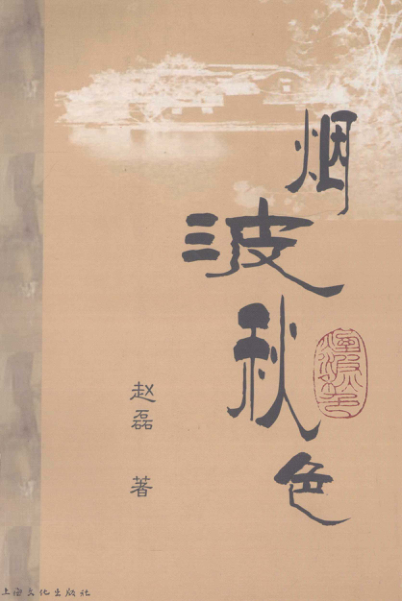 烟波秋色
赵磊 著
上海文化出版社